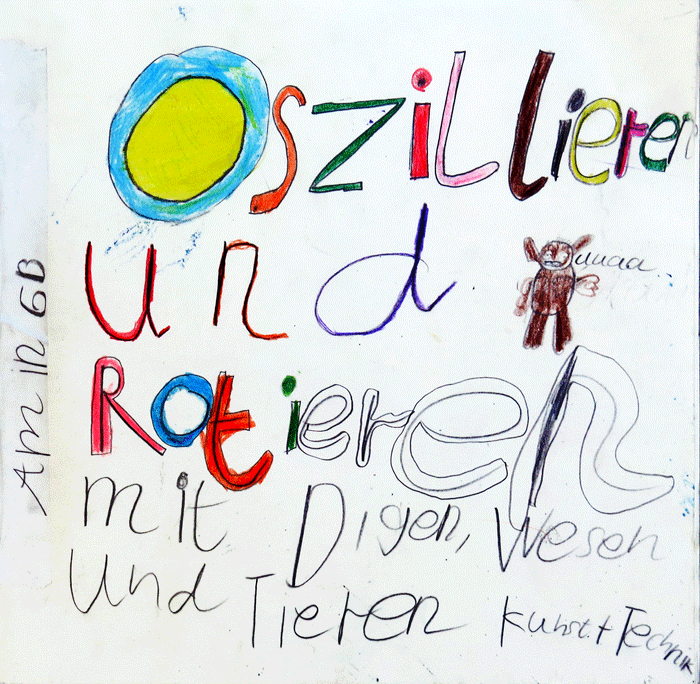 Oszillieren
und
uuaa
Rotieren
mit Digen, Wesen
und Tieren Kunst + Technik
Am in 6B